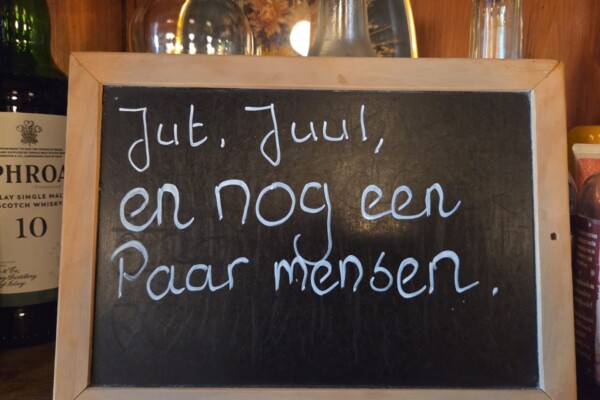 Jut, Juul,
en nog een
Paar mensen.
PHROA
LAY SINGLE MAL
SCOTCH WHISKY
10